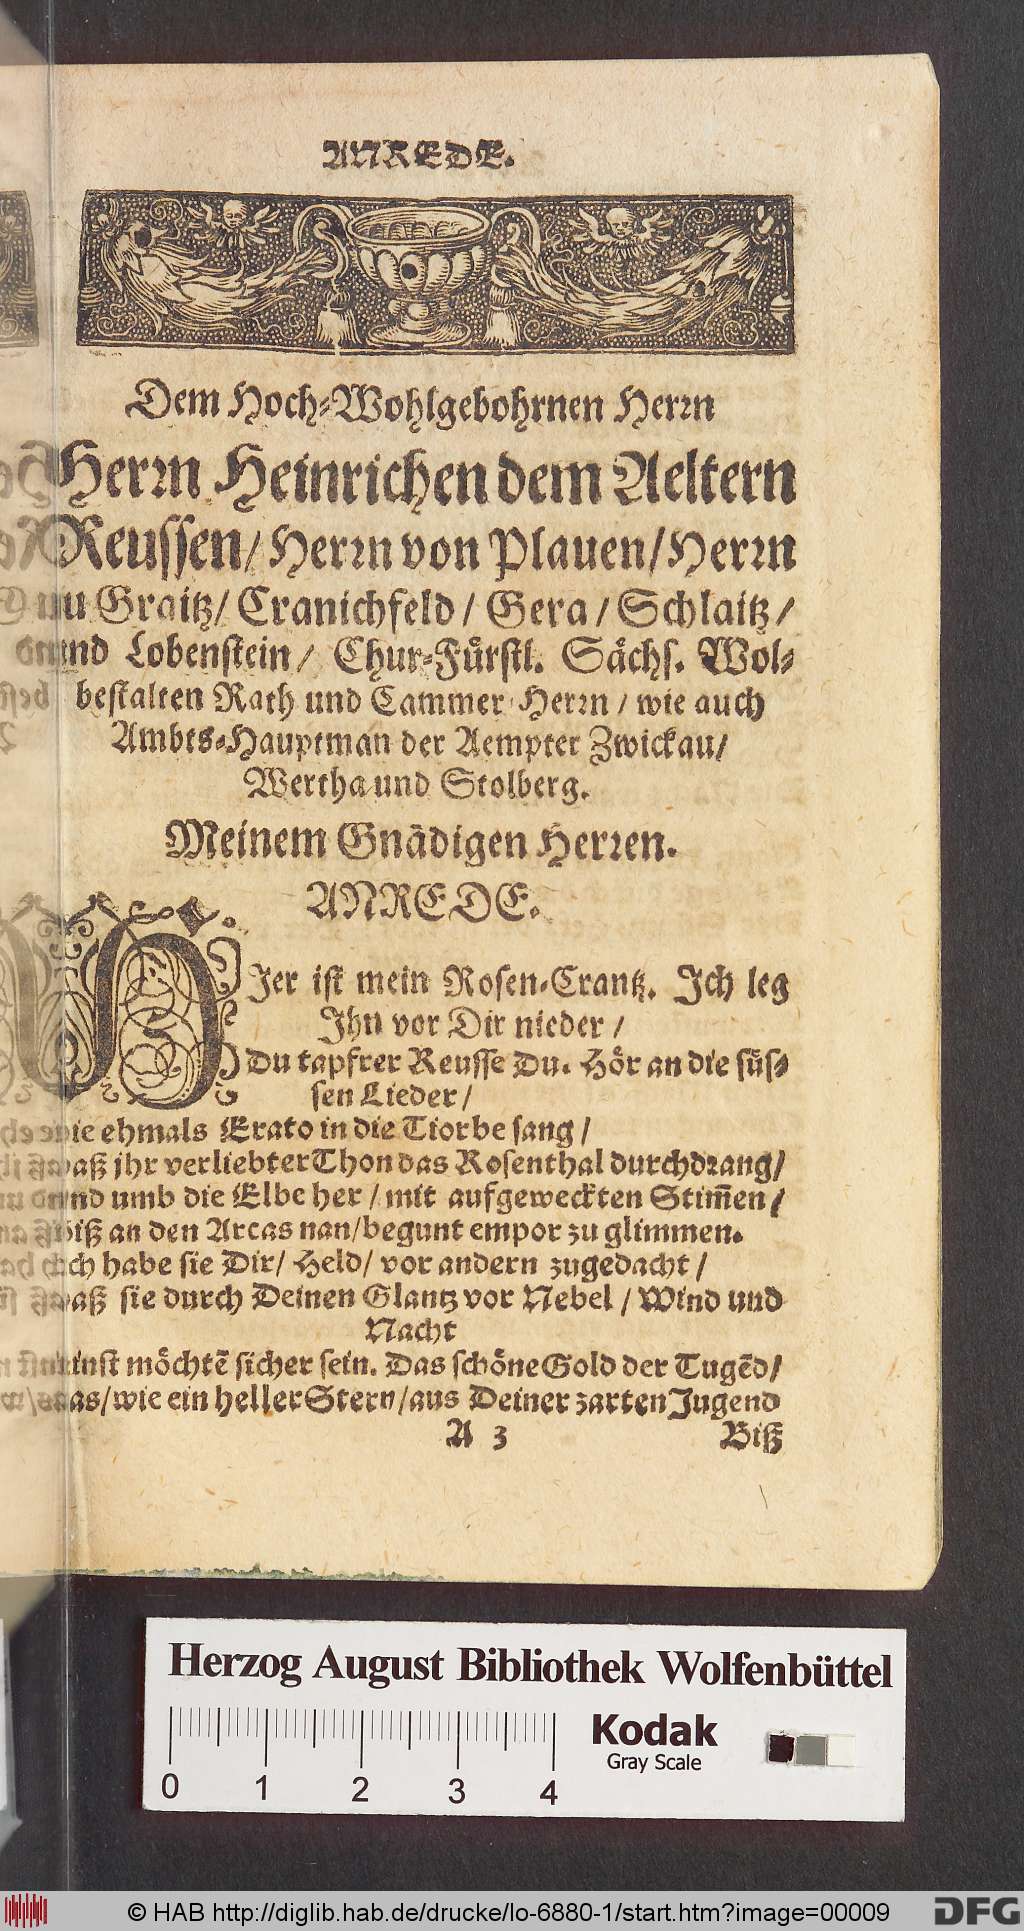 ANREDE.
Dem Hoch-Wohlgebohrnen Herrn
Herrn Heinrichen dem Aeltern
Reussen/ Herrn von Plauen/ Herrn
zu Graitz/ Cranichfeld/ Gera/ Schlaitz/
und Lobenstein/ Chur-Fürstl. Sächs. Wol-
bestalten Rath und Cammer Herrn/ wie auch
Ambts-Hauptman der Aempter Zwickau/
Wertha und Stolberg.
Meinem Gnädigen Herren.
ANREDE.
HIer ist mein Rosen-Crantz. Ich leg
Ihn vor Dir nieder/
Du tapfrer Reusse Du. Hör an die süs-
sen Lieder/
die ehmals Erato in die Tiorbe sang/
daß jhr verliebter Thon das Rosenthal durchdrang/
und umb die Elbe her/ mit aufgeweckten Stim̄en/
biß an den Arcas nan/ begunt empor zu glimmen.
Ich habe sie Dir/ Held/ vor andern zugedacht/
daß sie durch Deinen Glantz vor Nebel/ Wind und
Nacht
einst möchtē sicher sein. Das schöne Gold der Tugēd/
das/ wie ein heller Stern/ aus Deiner zarten Jugend
A 3 Biß
Herzog August Bibliothek Wolfenbüttel
Kodak
Gray Scale
0 1 2 3 4
© HAB http://diglib.hab.de/drucke/lo-6880-1/start.htm?image=00009
DFG